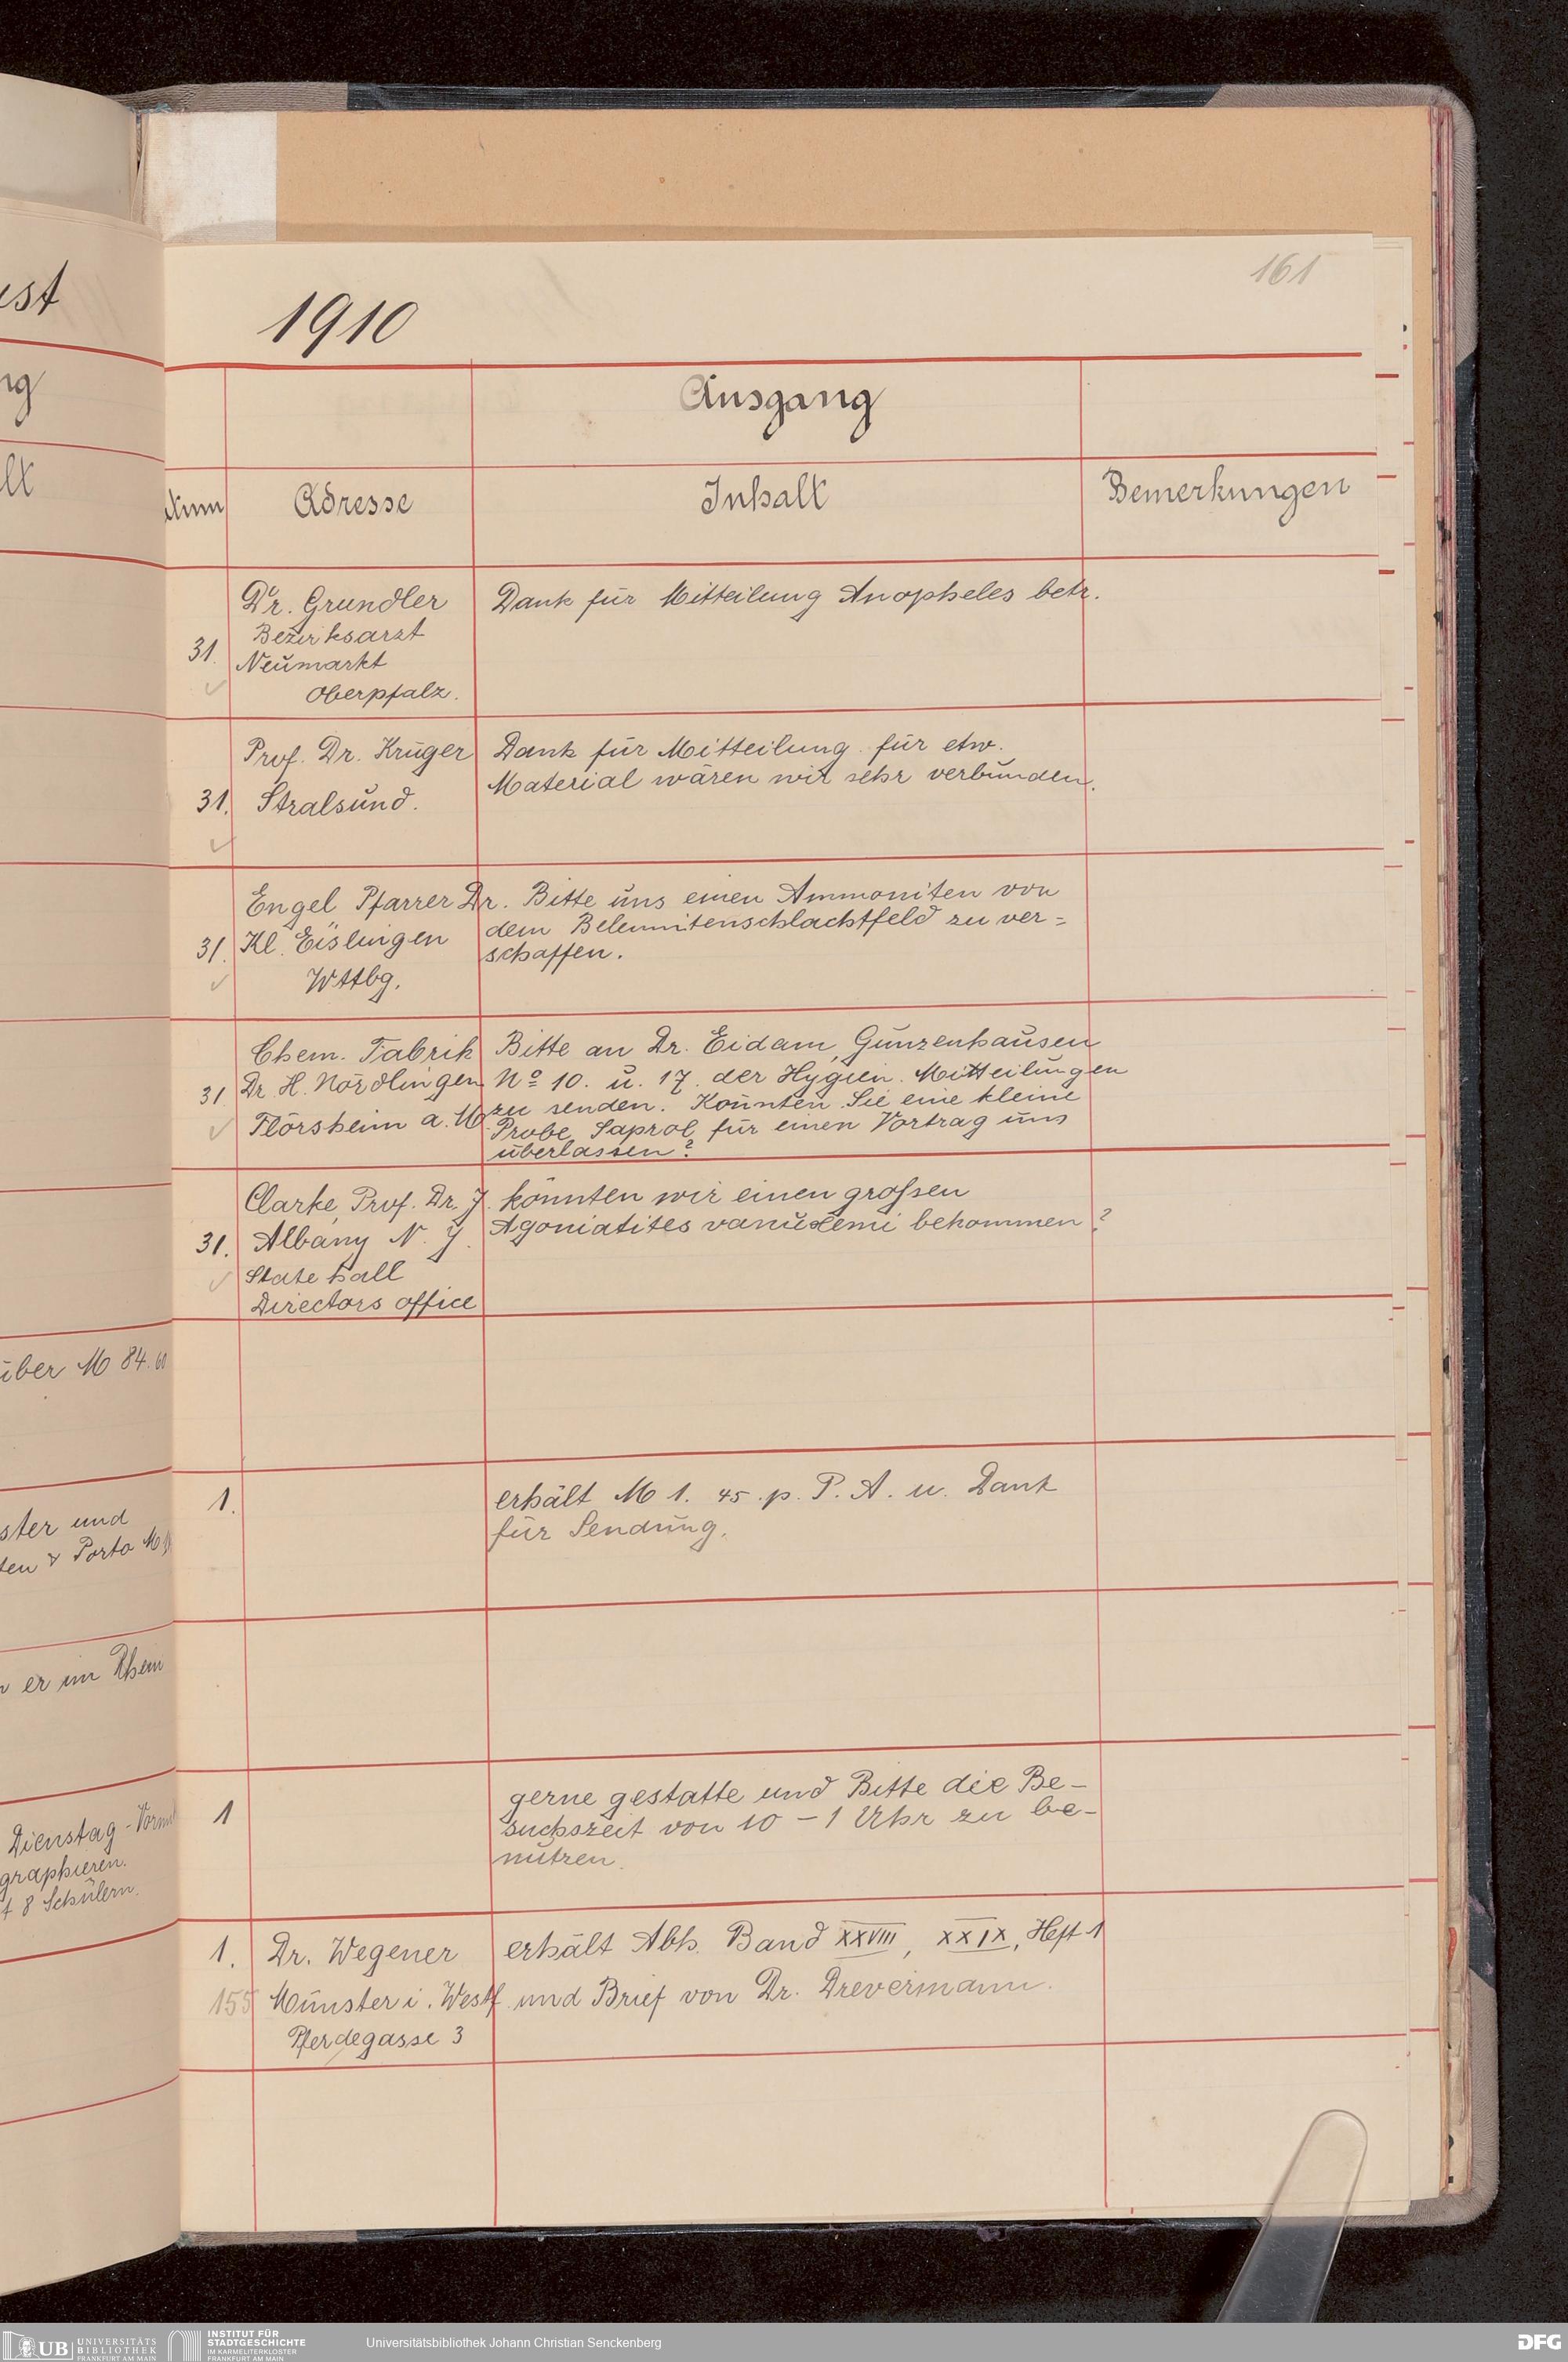 161
1910
Ausgang
Adresse
Inhalt
Bemerkungen
Dr. Grundler
Bezirksarzt
31.
Neumarkt
Oberpfalz.
Dank für Mitteilung Anopheles betr.
Prof. Dr. Krüger
31. Stralsund.
Dank für Mitteilung. für etw.
Material wären wir sehr verbunden.
Engel Pfarrer Dr.
31. Kl. Eislingen
Wttbg.
Bitte uns einen Ammoniten von
dem Belemnitenschlachtfeld zu ver=
schaffen.
Chem. Fabrik
31. Dr. H. Nördlingen
Flörsheim a. M.
Bitte an Dr. Eidam, Gunzenhausen
No 10. u. 17. der Hygien. Mitteilungen
zu senden. Könnten Sie eine kleine
Probe Saprol für einen Vortrag uns
überlassen?
Clarke, Prof. Dr. J.
31. Albany N. Y.
State hall
Directors office
könnten wir einen großen
Agoniatites vanuxemi bekommen?
1.
erhält M 1. 45. p. P. A. u. Dank
für Sendung.
1
gerne gestatte und Bitte die Be-
suchszeit von 10 - 1 Uhr zu be-
nützen.
1. Dr. Wegener
155 Münster i. Westf.
Pferdegasse 3
erhält Abh. Band XXVIII, XXIX, Heft 1
und Brief von Dr. Drevermann.
über M 84.60
ster und
ten & Porto M
er im Rhein
Dienstag-Vorm
graphieren.
8 Schülern.
UB UNIVERSITÄTS
BIBLIOTHEK
FRANKFURT AM MAIN
INSTITUT FÜR
STADTGESCHICHTE
IM KARMELITERKLOSTER
FRANKFURT AM MAIN
Universitätsbibliothek Johann Christian Senckenberg
DFG